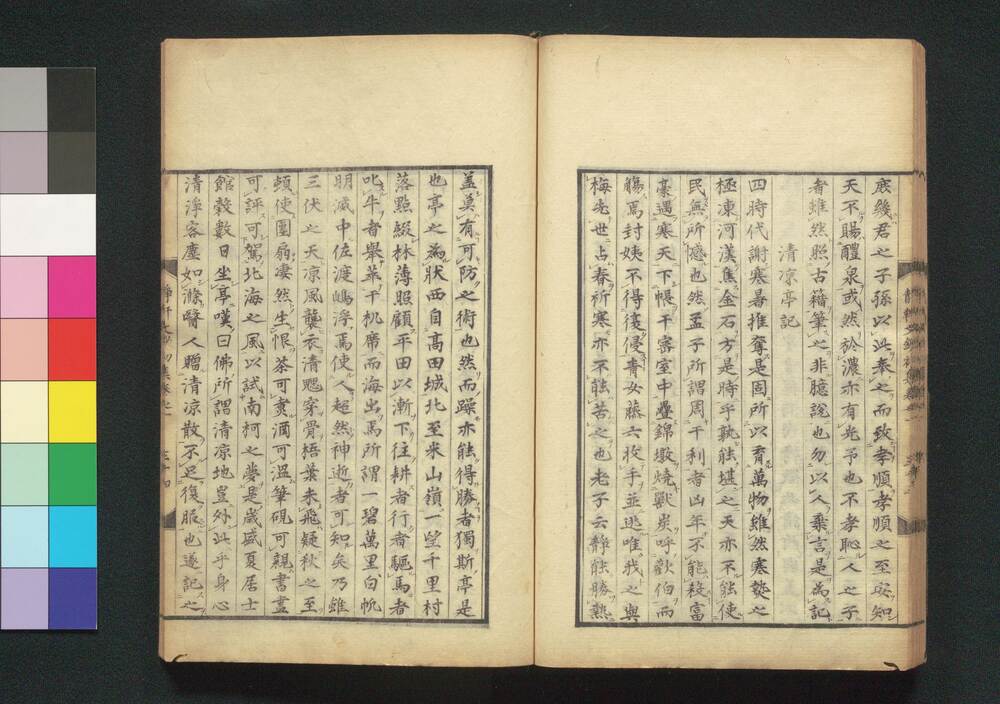 庶幾君之子孫以此奉之而致孝順孝順之至安知
天不賜醴泉或然於濃亦有光予也不孝恥人之子
者雖然照古籍筆之非臆說也勿以人棄言是為記
清凉亭記
四時代謝寒暑推奪是固所以育萬物雖然寒燠之
極凍河漢焦金石方是時乎孰能堪之天亦不能使
民無所憾也然孟子所謂周于利者凶年不能殺富
豪遇寒天下帳于密室中疊錦墩燒獸炭呼歡伯而
觴焉封姨不得復侵青女藤六收手並逃唯我之與
梅先世占春祈寒亦不能苦之也老子云靜能勝熱
盖莫有可防之術也然而躁亦能得勝者獨斯亭是
也亭之為狀西自高田城北至米山嶺一望千里村
落點綴林薄照顧平田以漸下往耕者行者驅馬者
叱牛者舉萃于机席而海出焉所謂一碧萬里白帆
明滅中佐渡嶋浮焉使人超然神逝者可知矣乃雖
三伏之天凉風襲衣清颸穿骨梧葉未飛疑秋之至
頓使團扇凄然生恨茶可煑酒可溫筆硯可親書畫
可評可駕北海之風以試南柯之夢是歲盛夏居士
館穀數日坐亭嘆曰佛所謂清凉地豈外此乎身心
清浮客塵如滌醫人贈清凉散不足復服也遂記之